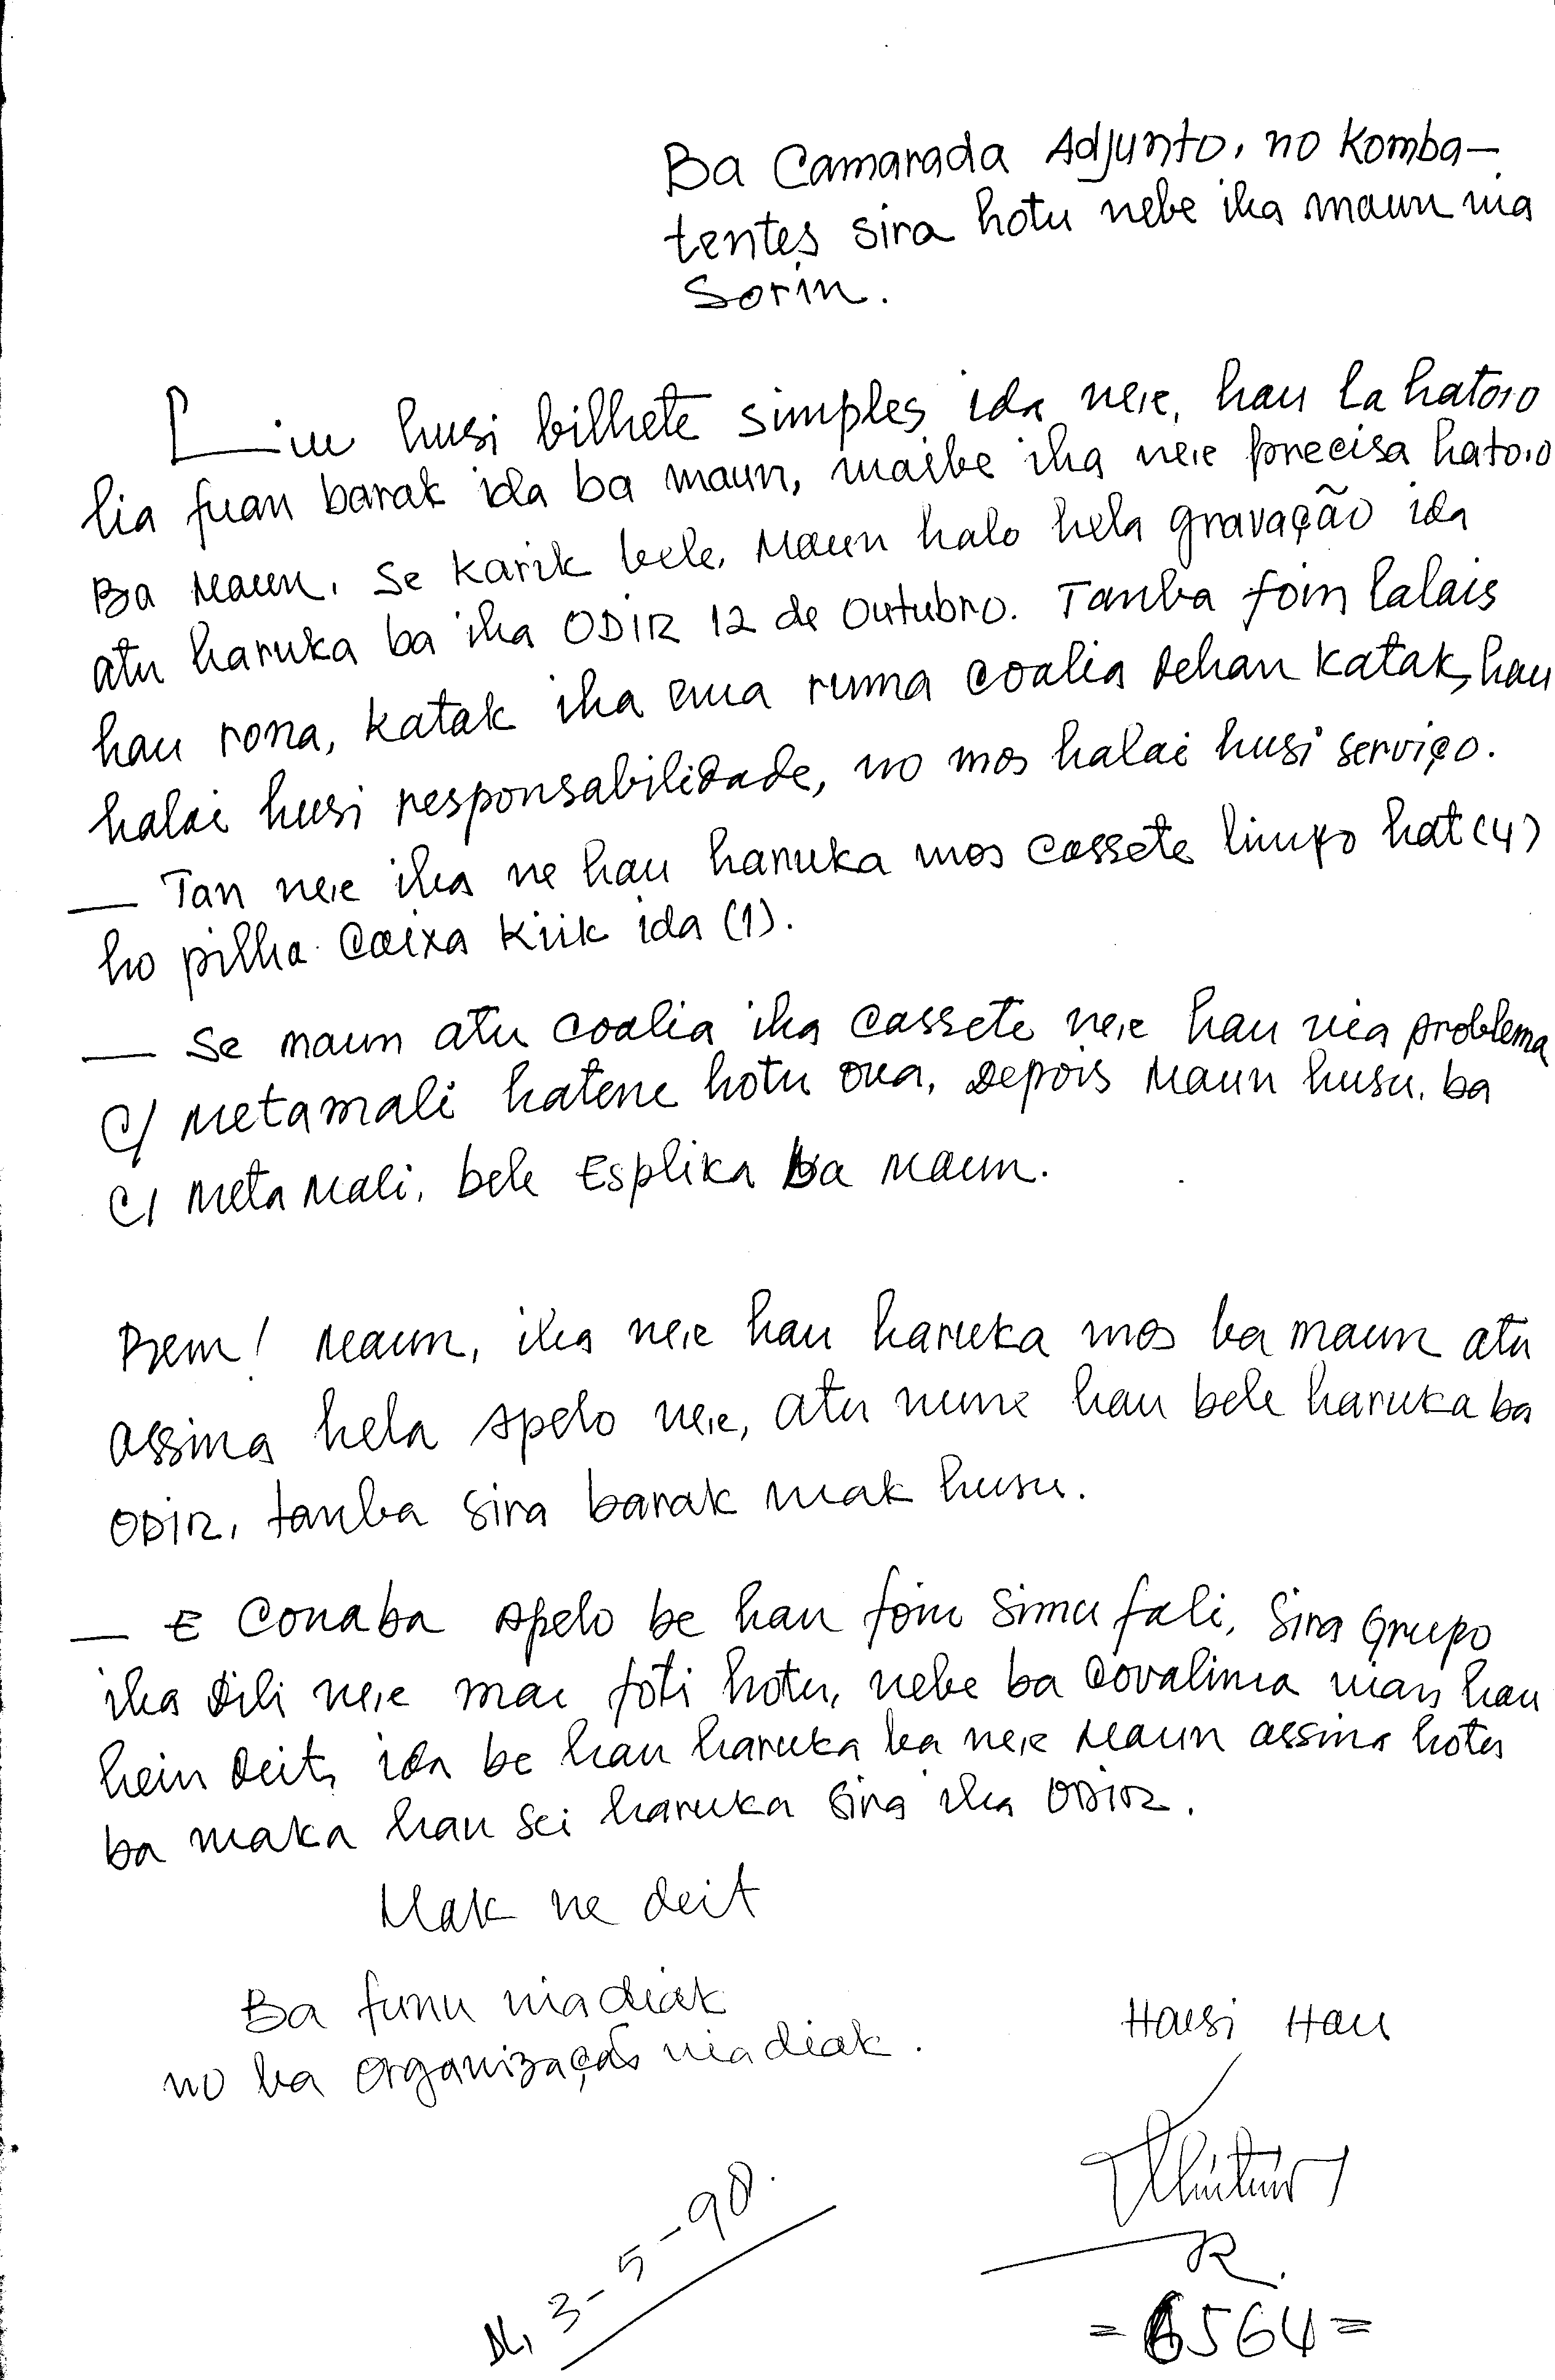 Ba Camarada Adjunto, no Komba-
tentes sira hotu nebe iha maun nia
Sorin.
Liu husi bilhete simples ida ne,e, hau la hato,o
lia fuan barak ida ba maun, maibe iha ne,e precisa hato,o
Ba Maun, se karik bele, Maun halo hela gravação ida
atu haruka ba iha ODIR 12 de Outubro. Tanba foin lalais
hau rona, katak iha ema ruma coalia dehan katak, hau
halai husi responsabilidade, no mos halai husi serviço.
— Tan ne,e iha ne hau haruka mos cassete limpo hat (4)
ho pilha caixa kiik ida (1).
— Se maun atu coalia iha cassete ne,e hau nia problema
C/ Metamali hatene hotu ona, Depois Maun husu, ba
C/ Meta Mali, bele Esplika ba Maun.
Bem! Maun, iha ne,e hau haruka mos ba maun atu
assina hela apelo ne,e, atu nune hau bele haruka ba
ODIR, tanba sira barak mak husu.
— E Conaba apelo be hau foin simu fali, sira grupo
iha Dili ne,e mai foti hotu, nebe ba Covalima nian hau
hein deit, ida be hau haruka ba ne,e Maun assina hotu
ba maka hau sei haruka sira iha ODIR.
Mak ne deit
Ba funu nia diak
no ba organização nia diak.
Husi Hau
R.
3-5-90.
=6564=